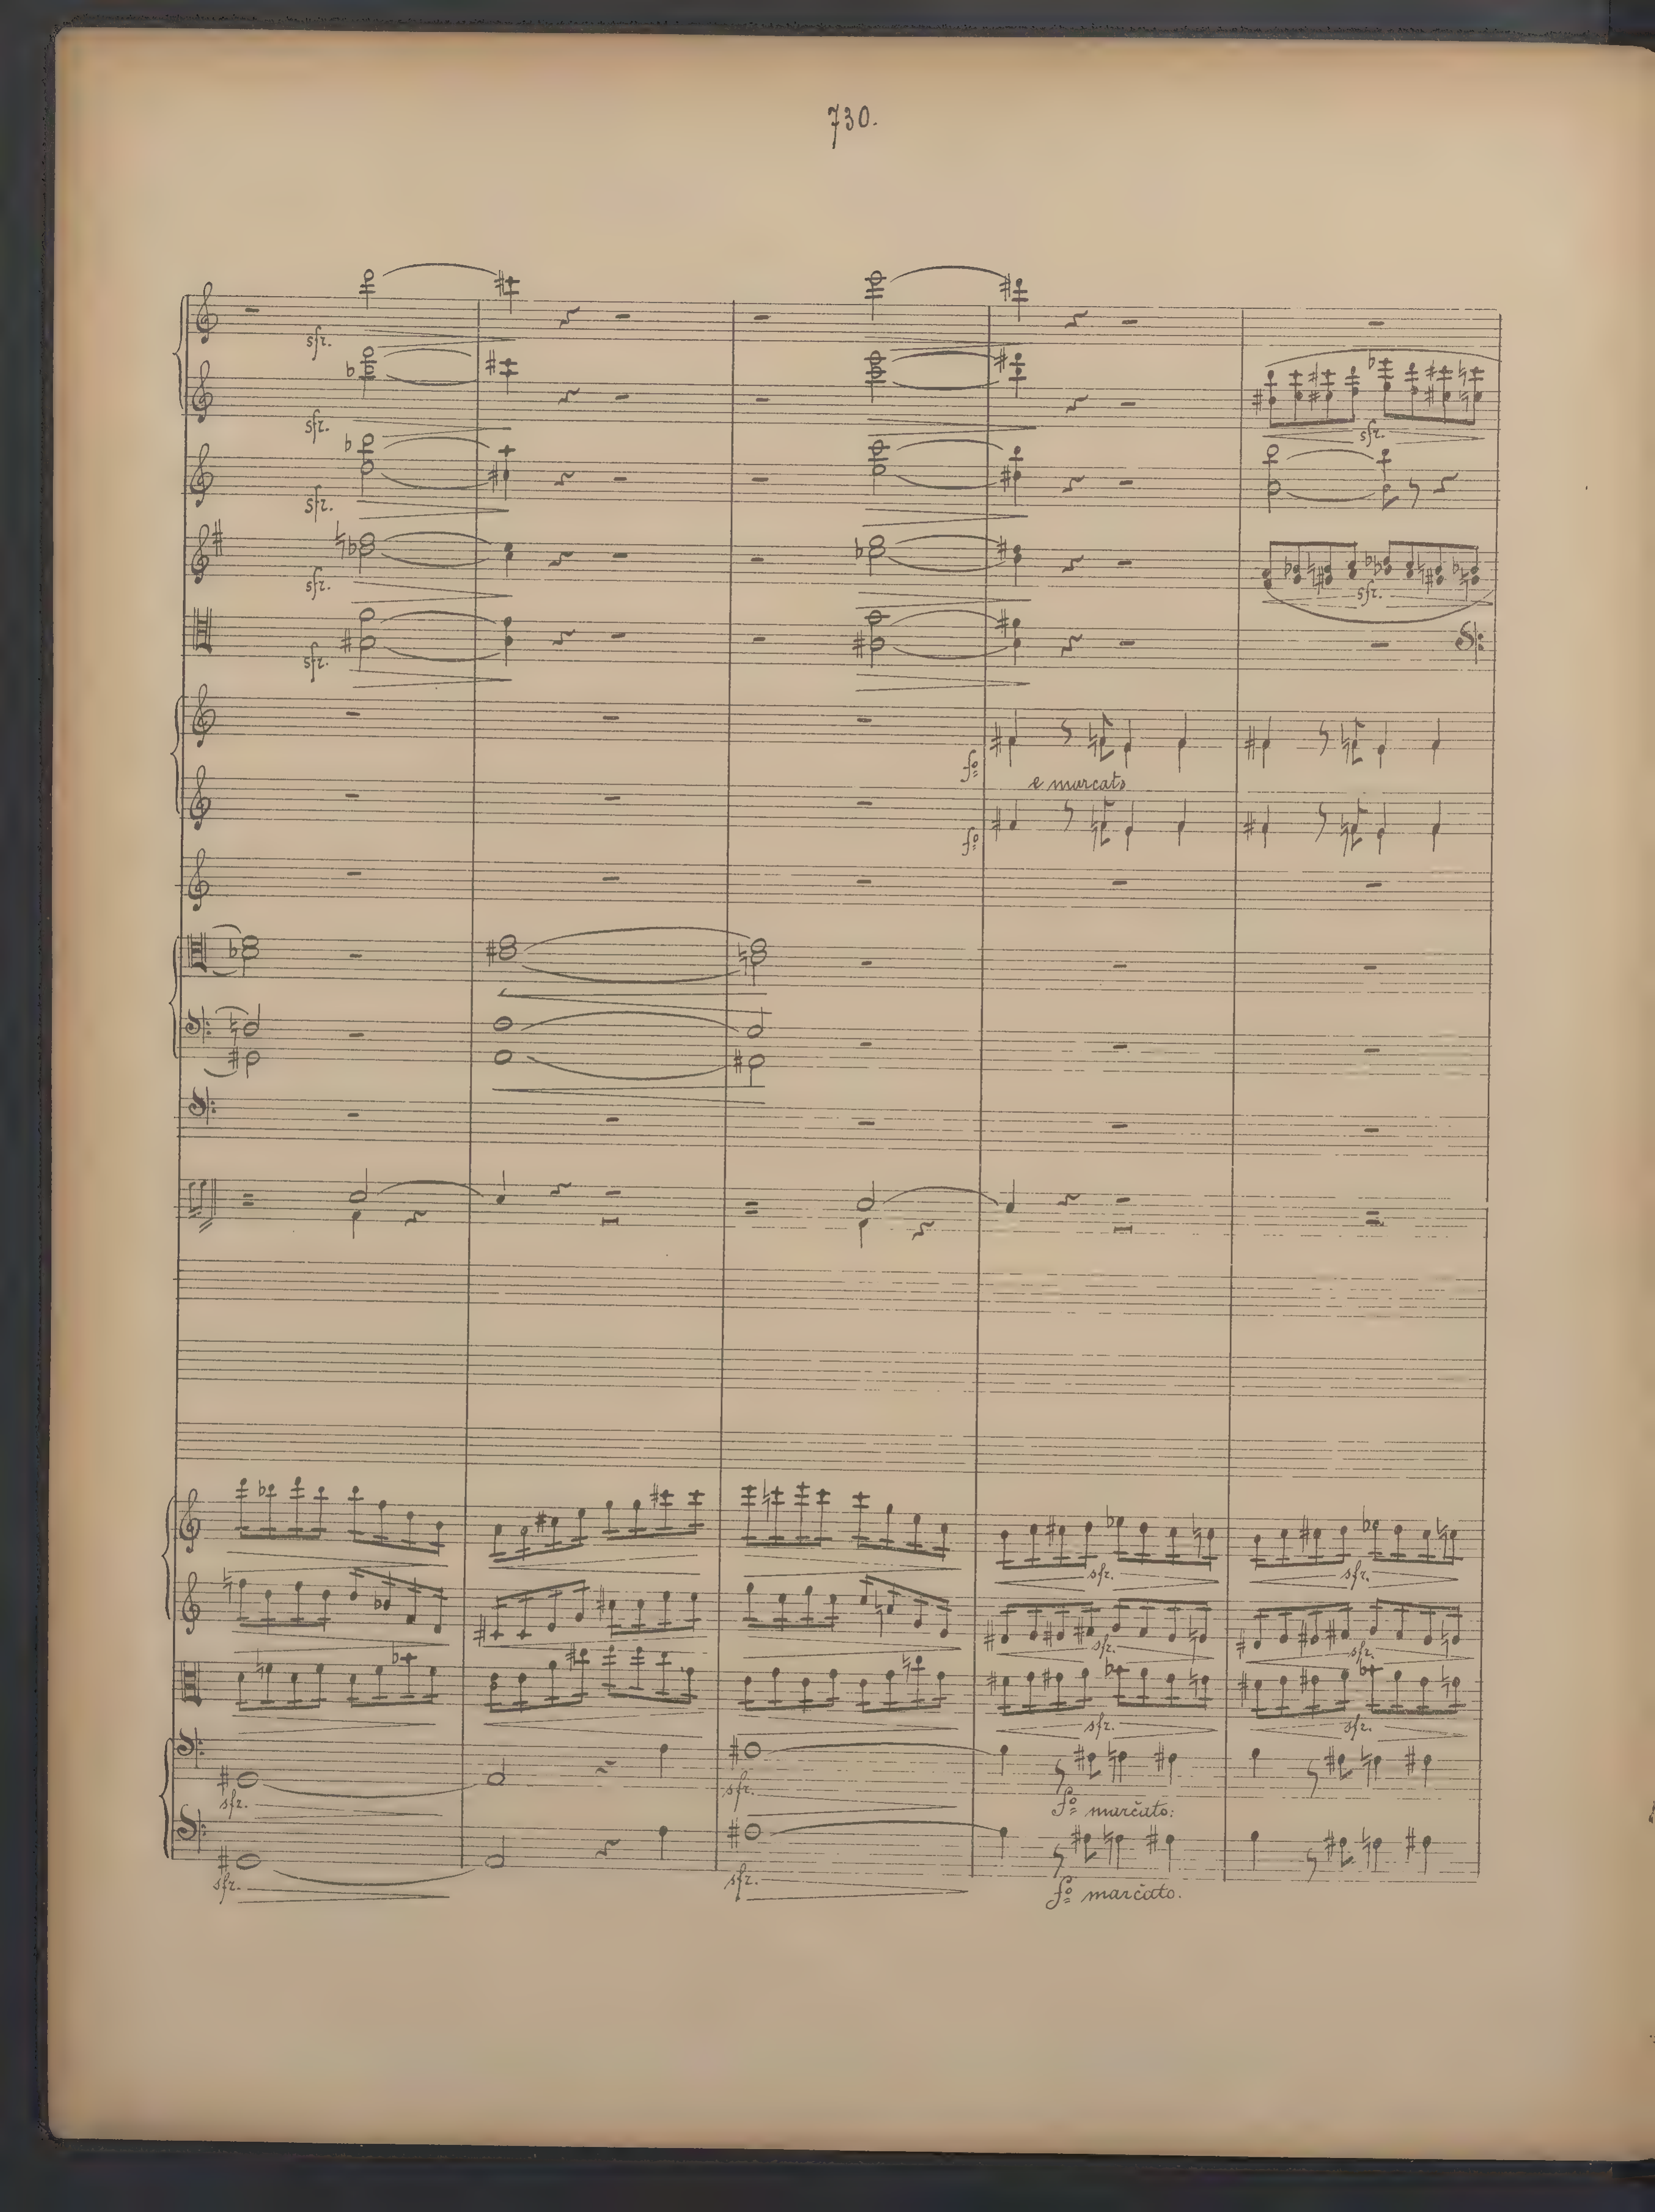 730.
sfz.
sfz.
sfz.
sfz.
sfz.
sfz.
sfz.
fo
e marcato
fo
sfz.
sfz.
sfz.
sfz.
sfz.
sfz.
sfz.
sfz.
fo marcato:
sfz.
sfz.
fo marcato.